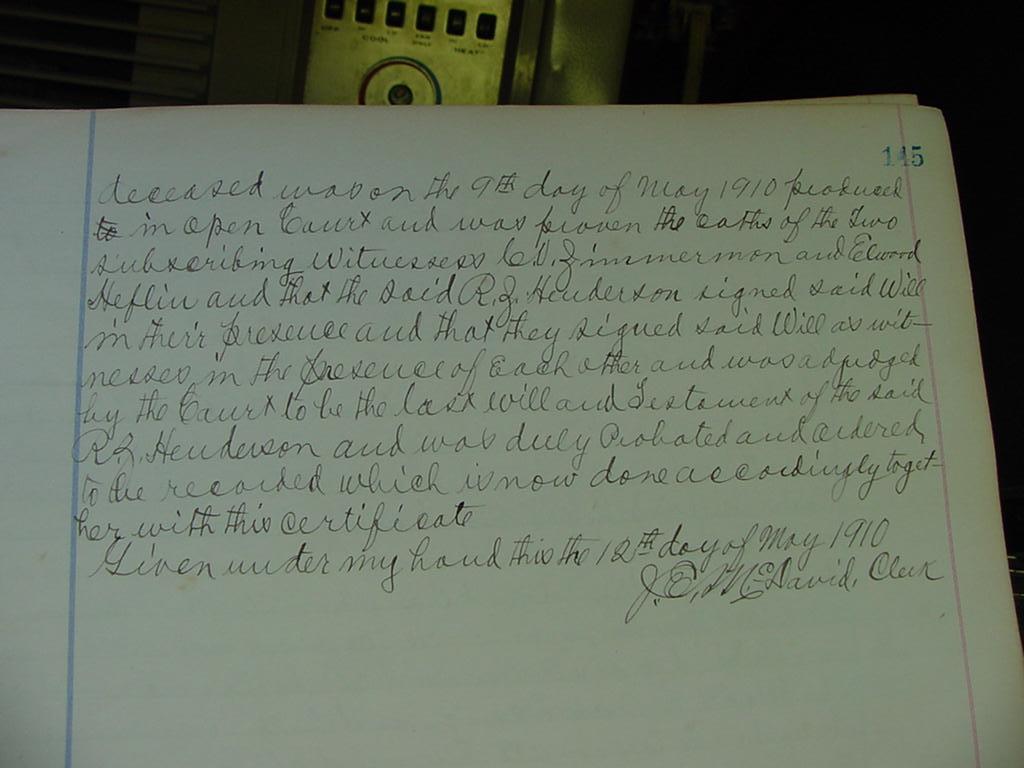 OFF
COOL
FAN ONLY
HEAT
145
deceased was on the 9th day of May 1910 produced
to in open Court and was proven the oaths of the Two
subscribing Witnessess C.W. Zimmermon and Elwood
Heflin and that the said R.Z. Henderson signed said Will
in their presence and that they signed said Will as wit-
nesses in the presence of Each other and was adjudged
by the Court to be the last will and Testament of the said
R.Z. Henderson and was duly Probated and ordered,
to be recorded which is now done accordingly toget-
her with this certificate
Given under my hand this the 12th day of May 1910
J.E. McDavid, Clerk